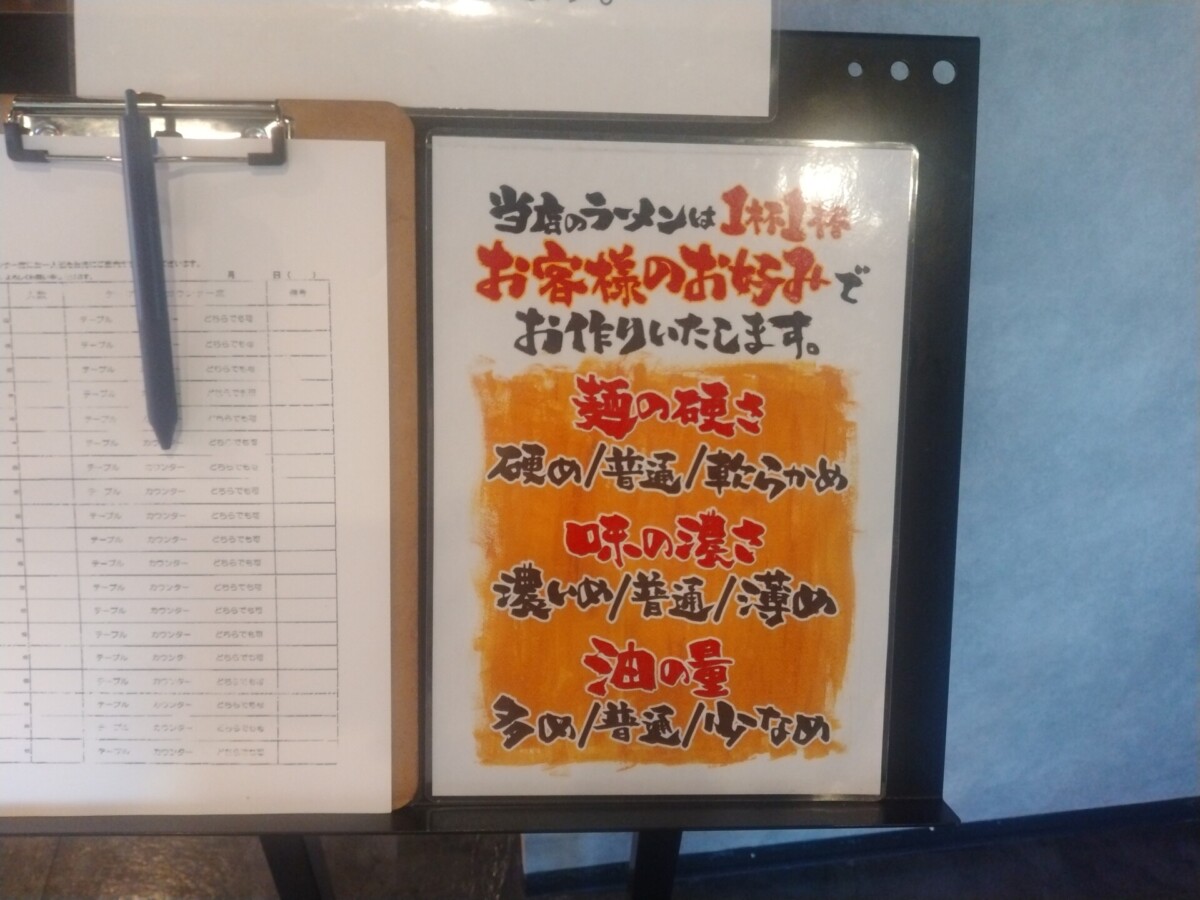 当店のラーメンは1杯1杯
お客様のお好みで
お作りいたします。
麺の硬さ
硬め/普通/軟らかめ
味の濃さ
濃いめ/普通/薄め
油の量
多め/普通/少なめ
月 日( )
人数 備考
テーブル どちらでも可
テーブル どちらでも可
テーブル どちらでも可
テーブル どちらでも可
テーブル どちらでも可
テーブル どちらでも可
テーブル カウンター どちらでも可
テーブル カウンター どちらでも可
テーブル カウンター どちらでも可
テーブル カウンター どちらでも可
テーブル カウンター どちらでも可
テーブル カウンター どちらでも可
テーブル カウンター どちらでも可
テーブル カウンター どちらでも可
テーブル カウンター どちらでも可
テーブル カウンター どちらでも可
テーブル カウンター どちらでも可
テーブル カウンター どちらでも可
テーブル カウンター どちらでも可